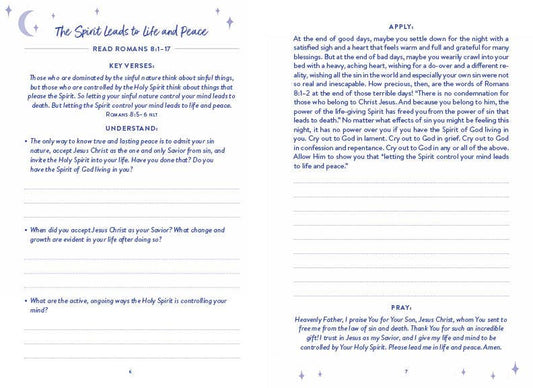 The Spirit Leads to Life and Peace
READ ROMANS 8:1–17
KEY VERSES:
Those who are dominated by the sinful nature think about sinful things,
but those who are controlled by the Holy Spirit think about things that
please the Spirit. So letting your sinful nature control your mind leads to
death. But letting the Spirit control your mind leads to life and peace.
ROMANS 8:5–6 NLT
UNDERSTAND:
• The only way to know true and lasting peace is to admit your sin
nature, accept Jesus Christ as the one and only Savior from sin, and
invite the Holy Spirit into your life. Have you done that? Do you
have the Spirit of God living in you?
• When did you accept Jesus Christ as your Savior? What change and
growth are evident in your life after doing so?
• What are the active, ongoing ways the Holy Spirit is controlling your
mind?
6
APPLY:
At the end of good days, maybe you settle down for the night with a
satisfied sigh and a heart that feels warm and full and grateful for many
blessings. But at the end of bad days, maybe you wearily crawl into your
bed with a heavy, aching heart, wishing for a do-over and a different re-
ality, wishing all the sin in the world and especially your own sin were not
so real and inescapable. How precious, then, are the words of Romans
8:1–2 at the end of those terrible days! "There is no condemnation for
those who belong to Christ Jesus. And because you belong to him, the
power of the life-giving Spirit has freed you from the power of sin that
leads to death." No matter what effects of sin you might be feeling this
night, it has no power over you if you have the Spirit of God living in
you. Cry out to God in lament. Cry out to God in grief. Cry out to God
in confession and repentance. Cry out to God in any or all of the above.
Allow Him to show you that "letting the Spirit control your mind leads
to life and peace."
PRAY:
Heavenly Father, I praise You for Your Son, Jesus Christ, whom You sent to
free me from the law of sin and death. Thank You for such an incredible
gift! I trust in Jesus as my Savior, and I give my life and mind to be
controlled by Your Holy Spirit. Please lead me in life and peace. Amen.
7